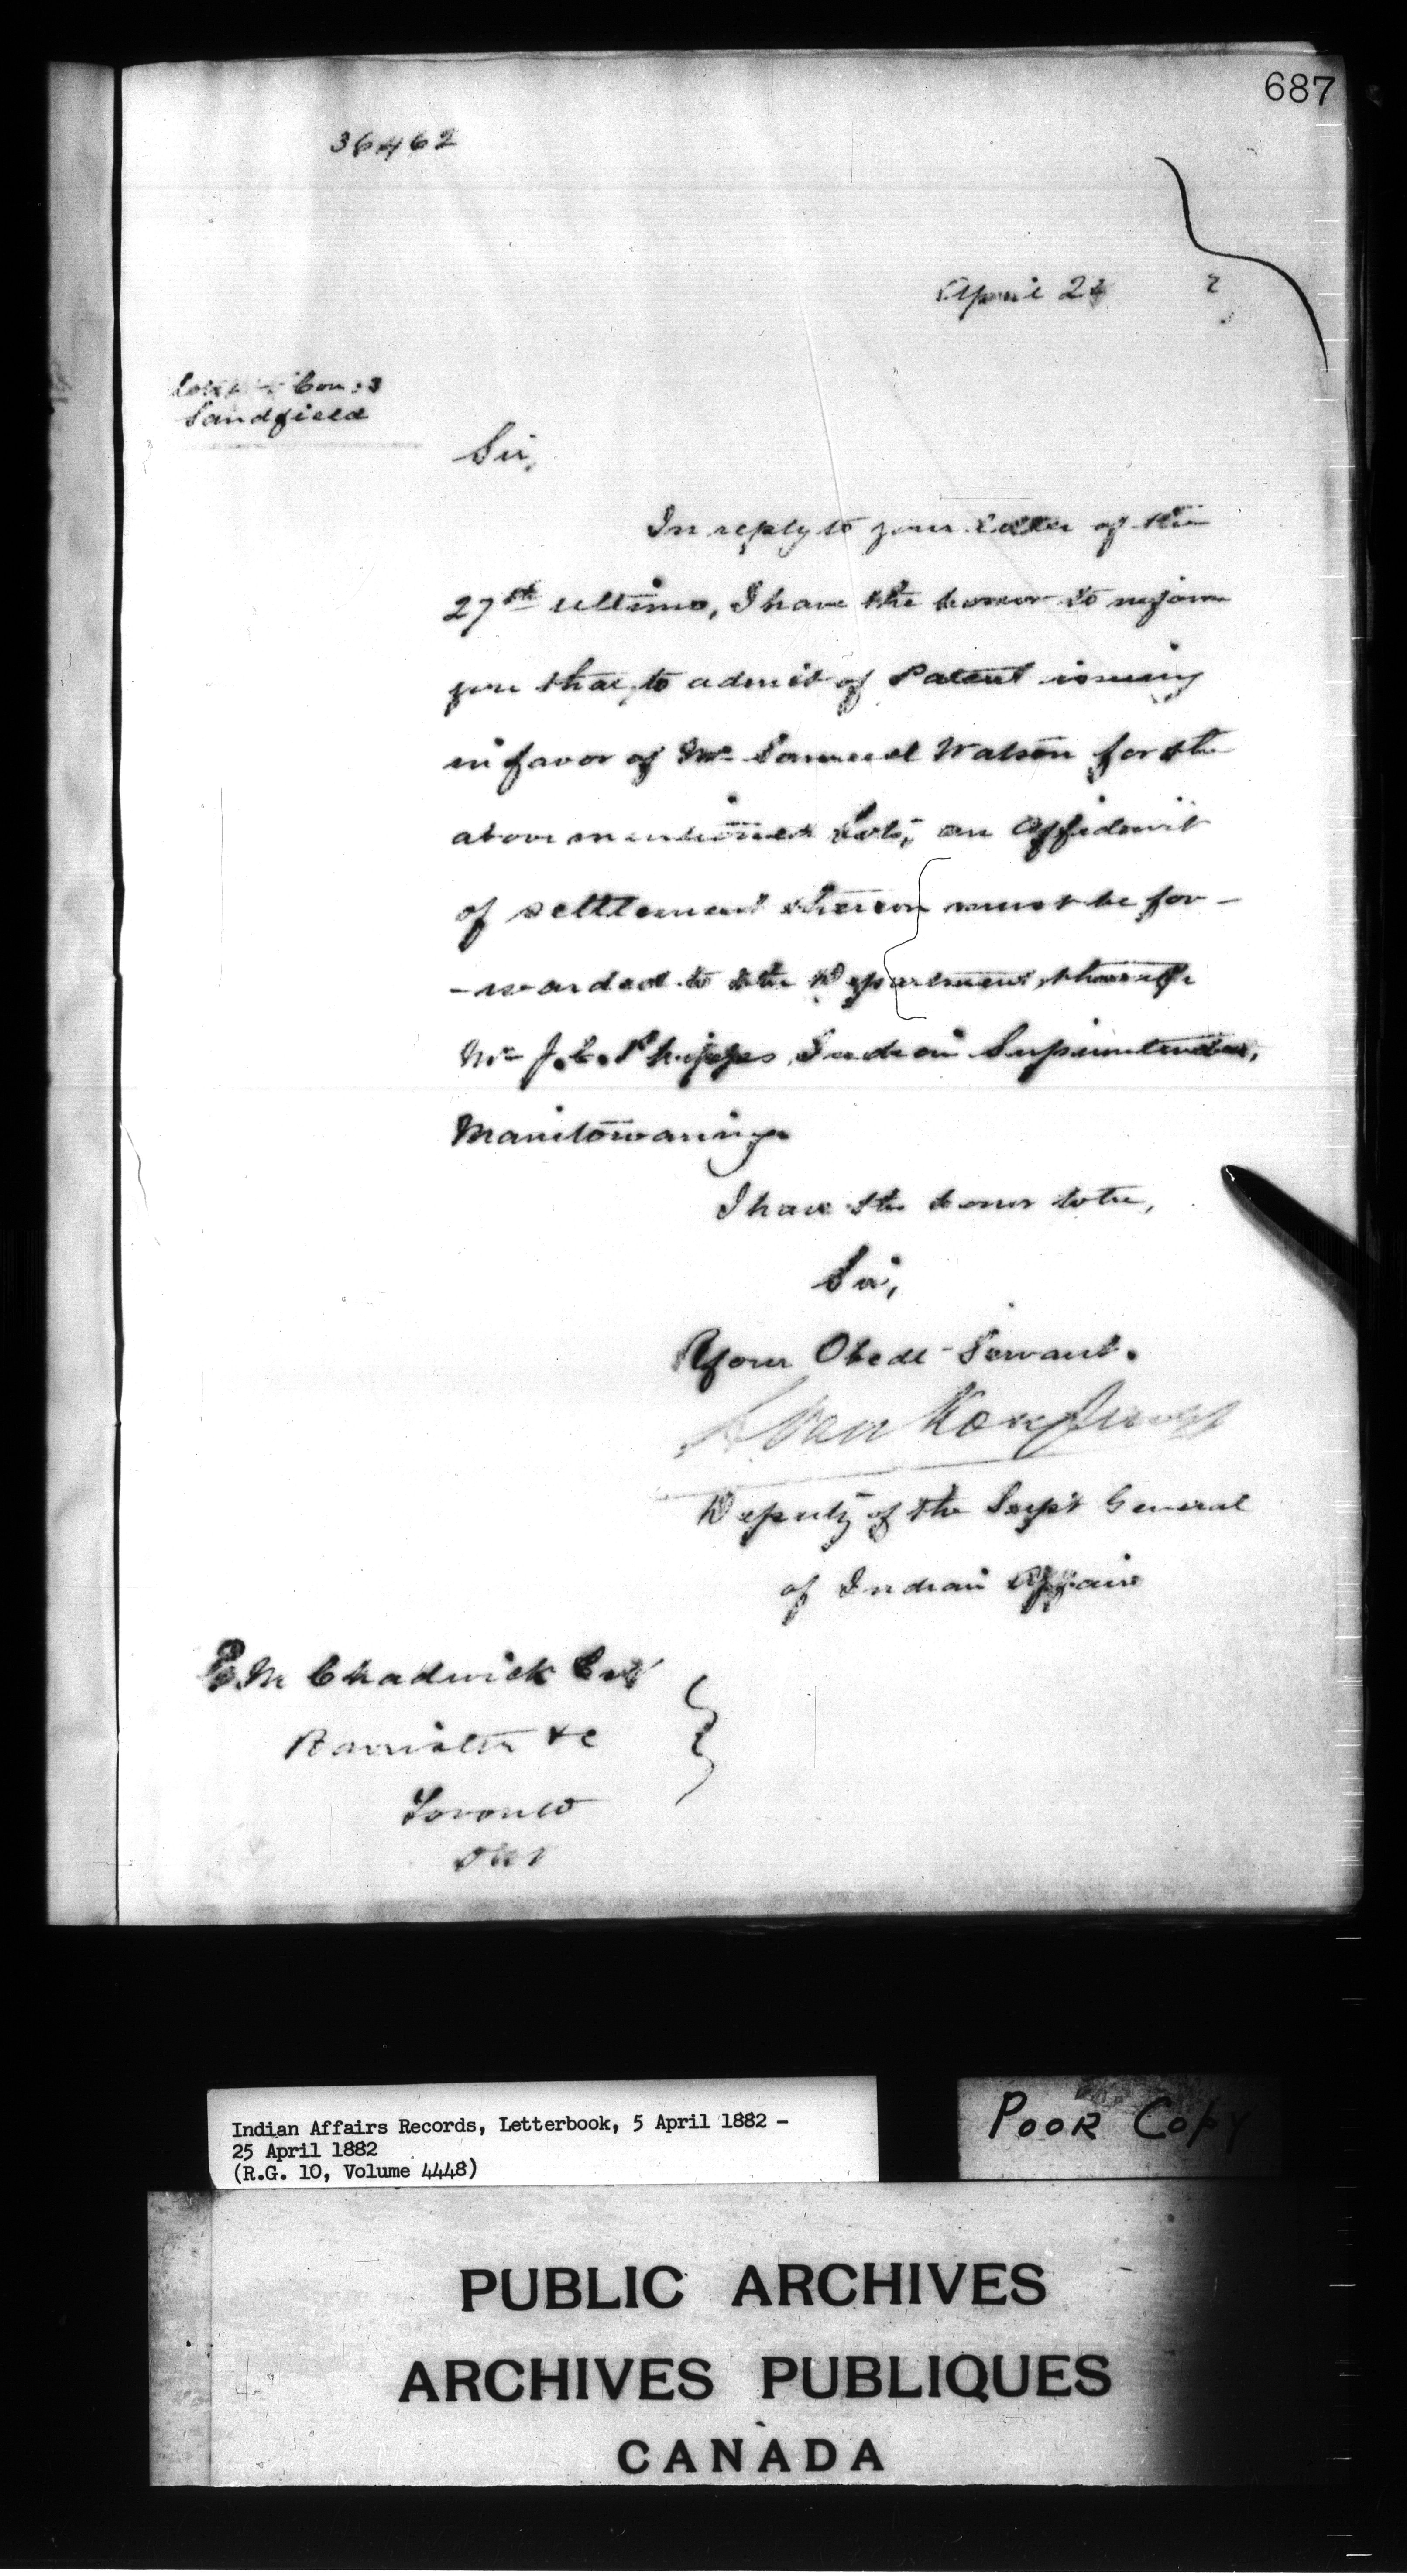 687
36462
April 24 2
Con: 3
Sandfield
Sir,
In reply to your letter of the
27th ultimo, I have the honor to inform
you that, to admit of Patent issuing
in favor of Mr Samuel Watson for the
above mentioned Lots, an Affidavit
of settlement thereon must be for-
-warded to the Department, through
Mr J.C. Phipps, Indian Superintendent,
Manitowaning.
I have the honor to be,
Sir,
Your Obedt Servant.
L VanKoughnet
Deputy of the Supt General
of Indian Affairs
E.M Chadwick Esq
Barrister &c
Toronto
Ont
Indian Affairs Records, Letterbook, 5 April 1882 -
25 April 1882
(R.G. 10, Volume 4448)
POOR COPY
PUBLIC ARCHIVES
ARCHIVES PUBLIQUES
CANADA